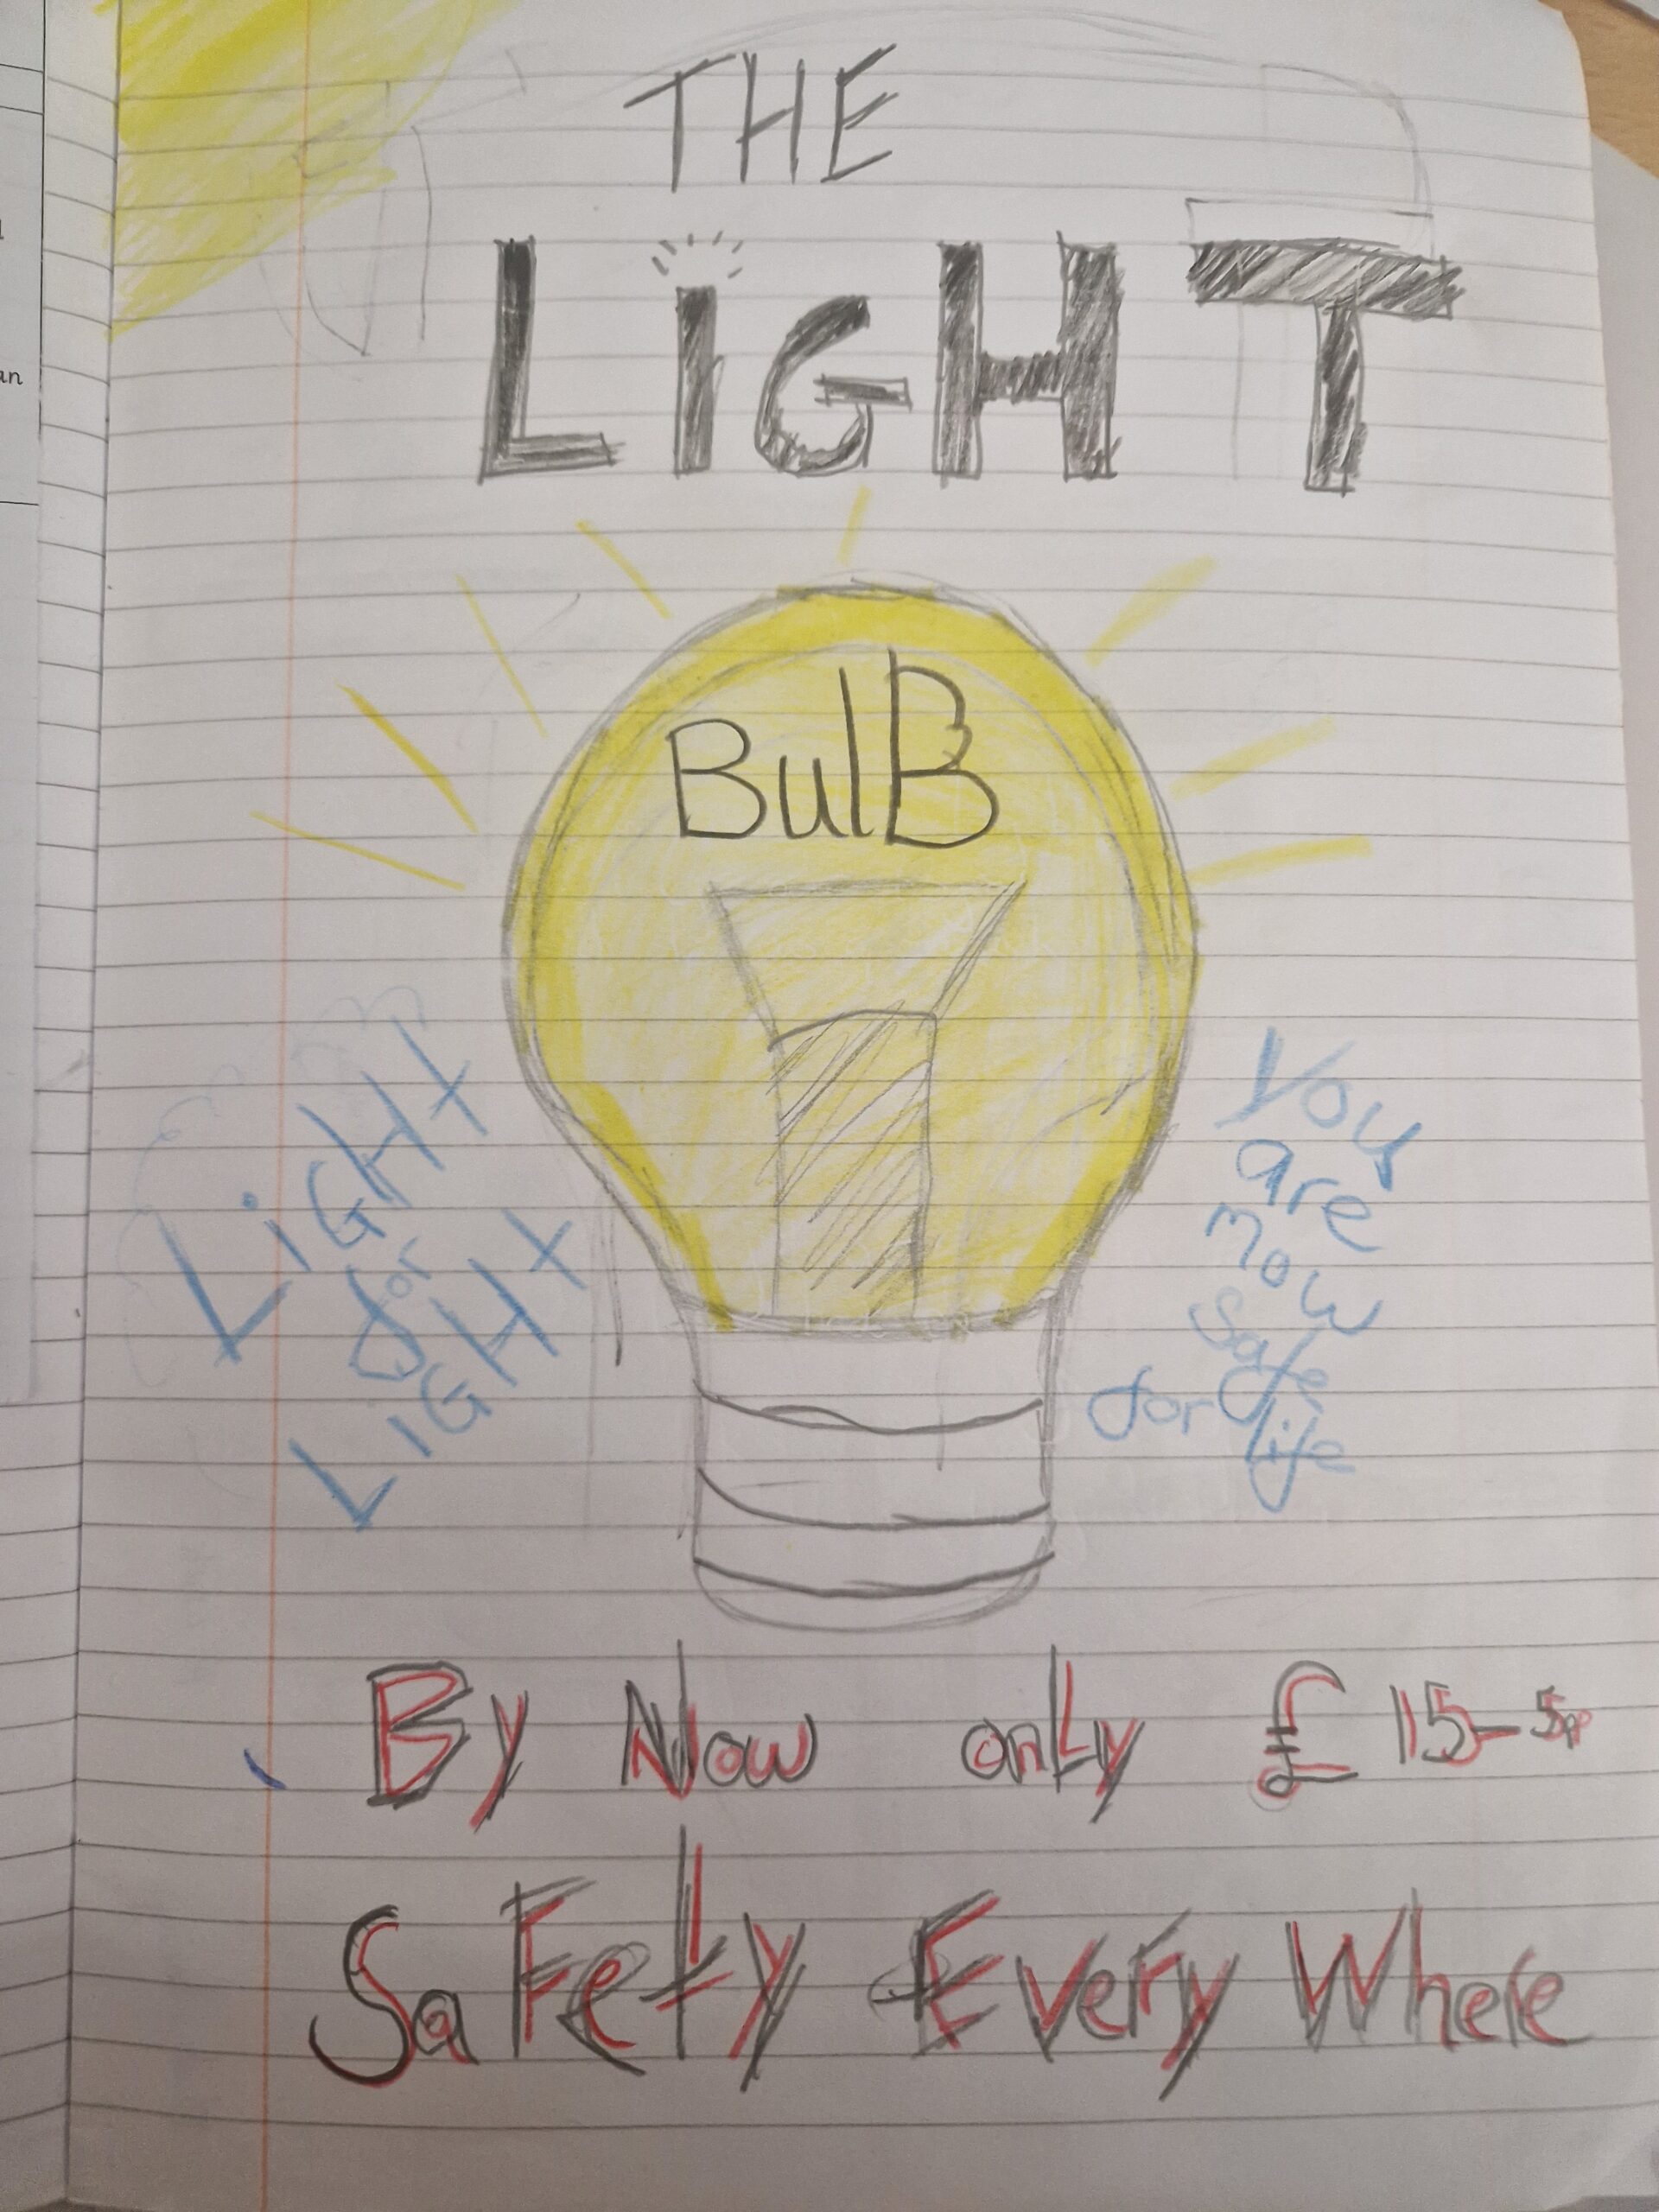 THE
LiGHT
BulB
LiGHt
for
LiGHt
You
are
now
safe
for life
By Now only £15-5pp
SaFety Every Where
an